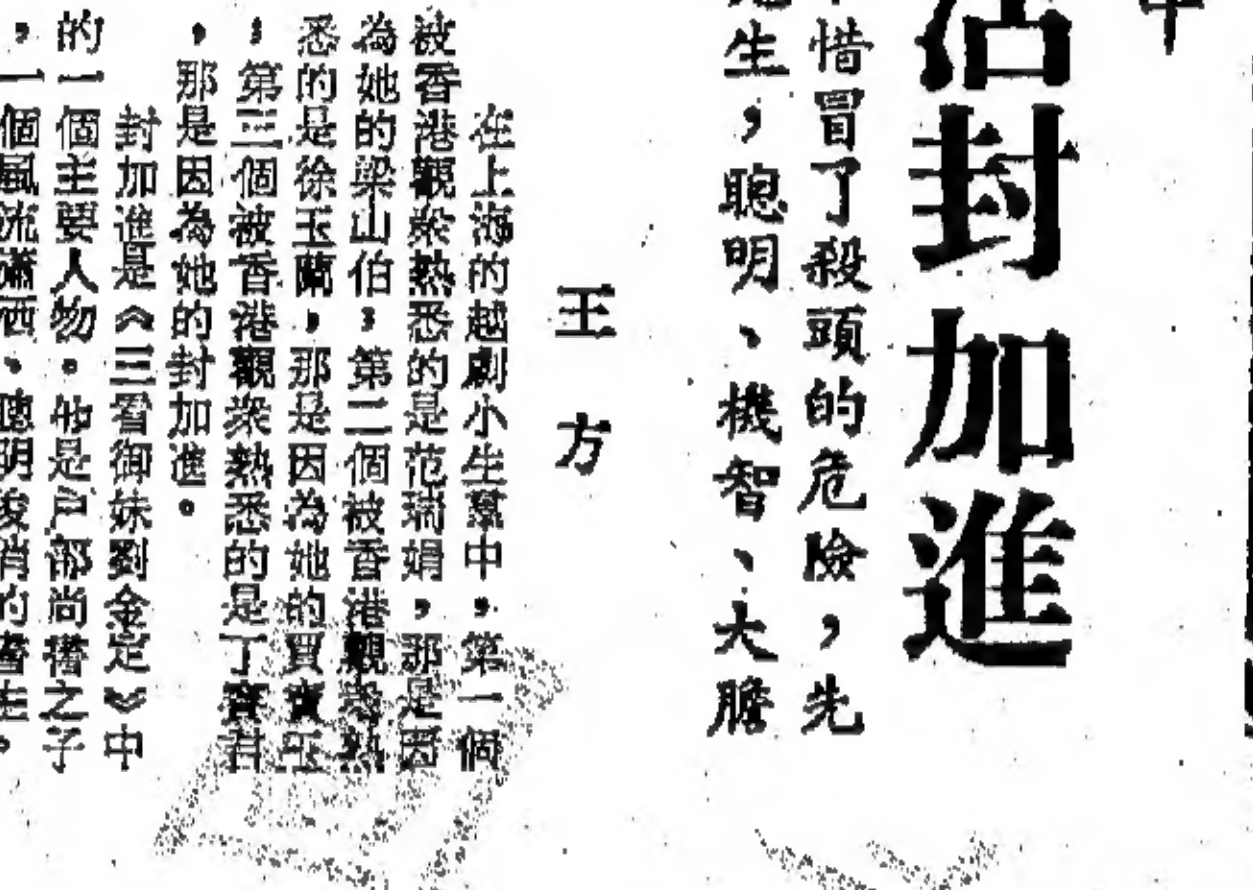 中
活封加進
不惜冒了殺頭的危險，先
生，聰明、機智、大膽
王方
在上海的越劇小生羣中，第一個
被香港觀眾熱悉的是范瑞娟，那是因
為她的梁山伯，第二個被香港觀眾熱
悉的是徐玉蘭，那是因為她的賈寶玉
，第三個被香港觀眾熱悉的是丁賽君
，那是因為她的封加進。
封加進是《三看御妹劉金定》中
的一個主要人物。他是戶部尚書之子
，一個風流瀟洒、聰明俊俏的書生。